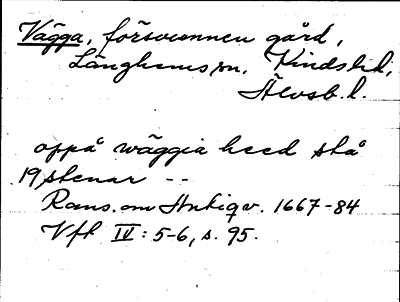 Vägga, försvunnen gård,
Länghems sn, Kinds hd,
Älvsb. l.
oppå wäggia heed stå
19 stenar --
Rans. om Antiqv. 1667-84
Vfl IV: 5-6, s. 95.